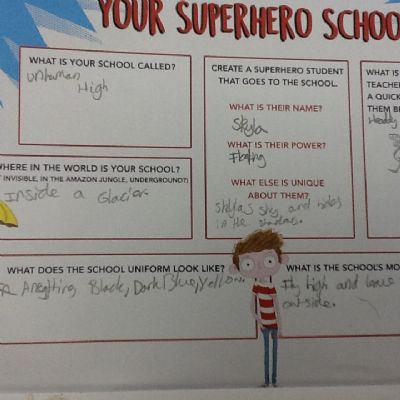 YOUR SUPERHERO SCHOO
WHAT IS YOUR SCHOOL CALLED?
Unhuman
High
CREATE A SUPERHERO STUDENT
THAT GOES TO THE SCHOOL.
WHAT IS THEIR NAME?
Skyla
WHAT IS THEIR POWER?
Floating
WHAT ELSE IS UNIQUE
ABOUT THEM?
Skyla's shy and hides
in the shadows.
WHAT IS
TEACHE
A QUICK
THEM B
WHERE IN THE WORLD IS YOUR SCHOOL?
INVISIBLE, IN THE AMAZON JUNGLE, UNDERGROUND?)
Inside a Glacier
WHAT DOES THE SCHOOL UNIFORM LOOK LIKE?
Black, Dark Blue, Yellow.
WHAT IS THE SCHOOL'S MO
Fly high and leave
outside.